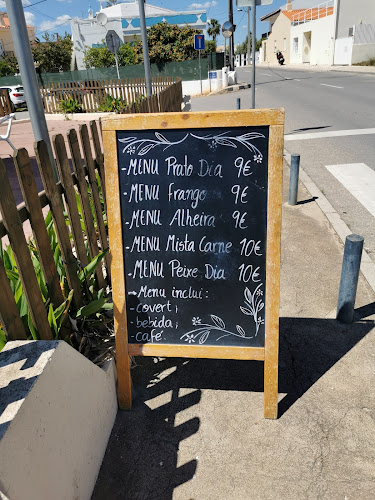 -MENU Prato Dia 9€
-MENU frango 9€
-MENU Alheira 9€
-MENU Mista Carne 10€
-MENU Peixe Dia 10€
-Menu inclui:
-covert;
-bebida;
-café.